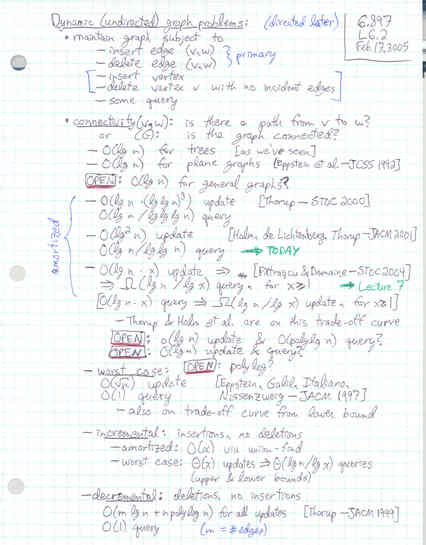 Dynamic (undirected) graph problems: (directed later)
6.897
L6.2
Feb. 17, 2005
• maintain graph subject to
– insert edge (v,w)
– delete edge (v,w) } primary
[– insert vertex
– delete vertex v with no incident edges]
– some query
• connectivity(v,w): is there a path from v to w?
or (G): is the graph connected?
– O(lg n) for trees [as we've seen]
– O(lg n) for plane graphs [Eppstein et al – JCSS 1992]
OPEN: O(lg n) for general graphs?
amortized
– O(lg n · (lg lg n)³) update [Thorup – STOC 2000]
O(lg n / lg lg lg n) query
– O(lg² n) update [Holm, de Lichtenberg, Thorup – JACM 2001]
O(lg n / lg lg n) query → TODAY
– O(lg n · x) update ⇒ [Pǎtraşcu & Demaine – STOC 2004]
⇒ Ω(lg n / lg x) query, for x≥1 → Lecture 7
[O(lg n · x) query ⇒ Ω(lg n / lg x) update, for x≥1]
– Thorup & Holm et al. are on this trade-off curve
OPEN: o(lg n) update & O(polylg n) query?
OPEN: O(lg n) update & query?
– worst case: OPEN: polylog?
O(√n) update [Eppstein, Galil, Italiano,
O(1) query Nissenzweig – JACM 1997]
– also on trade-off curve from lower bound
– incremental: insertions, no deletions
– amortized: O(α) via union-find
– worst case: Θ(x) updates ⇒ Θ(lg n / lg x) queries
(upper & lower bounds)
– decremental: deletions, no insertions
O(m lg n + n polylg n) for all updates [Thorup – JACM 1999]
O(1) query (m = # edges)